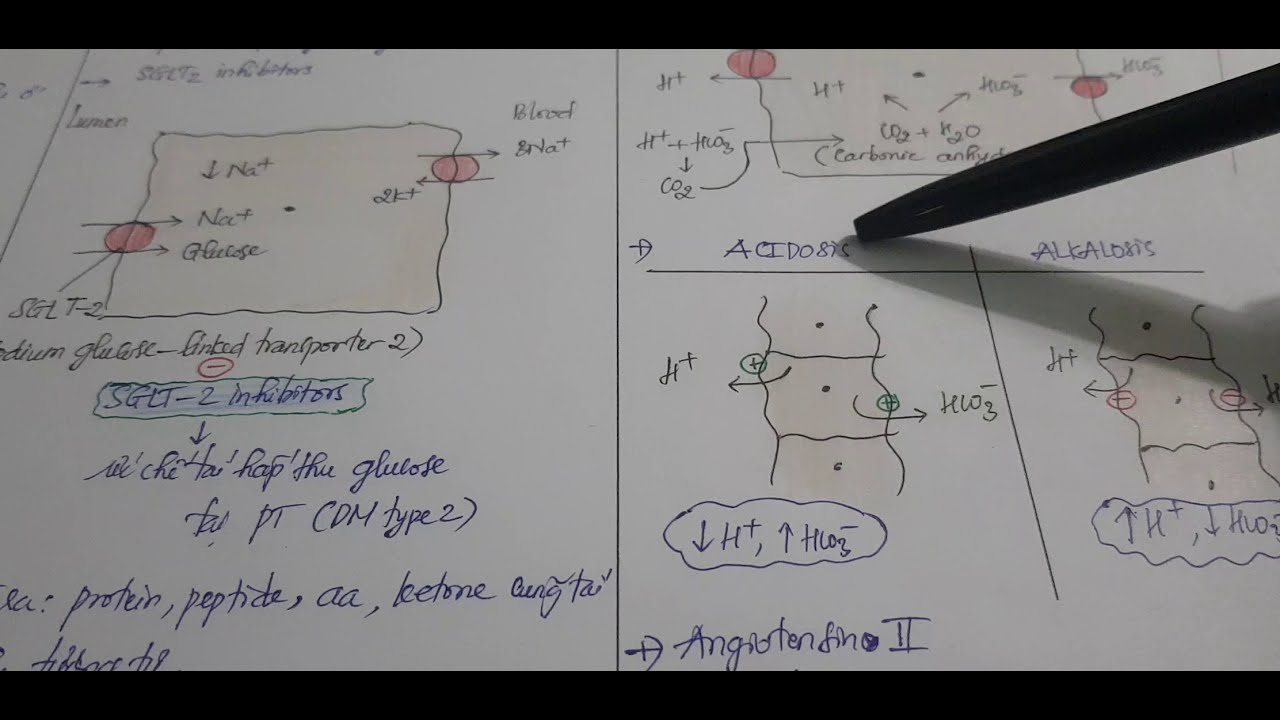 → SGLT2 inhibitors
Lumen
Blood
↓ Na+
3Na+
2K+
Na+
Glucose
SGLT-2
glucose-linked transporter 2)
⊖
SGLT-2 inhibitors
↓
ức chế tái hấp thu glucose
tại PT (DM type 2)
protein, peptide, aa, ketone cũng tái
H+
H+
HCO3-
HCO3-
H+ + HCO3-
↓
CO2
CO2 + H2O
(Carbonic
→ ACIDOSIS
ALKALOSIS
H+
+
+
HCO3-
↓H+, ↑HCO3-
H+
-
-
↑H+, ↓HCO3
→ Angiotensin II